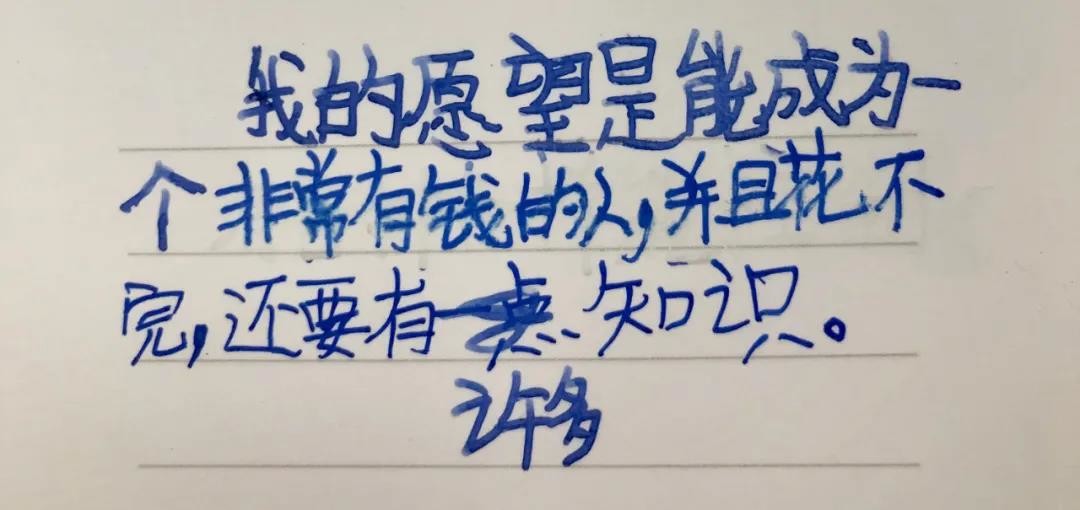 我的愿望是能成为一
个非常有钱的人,并且花不
完,还要有一点知识。
许多